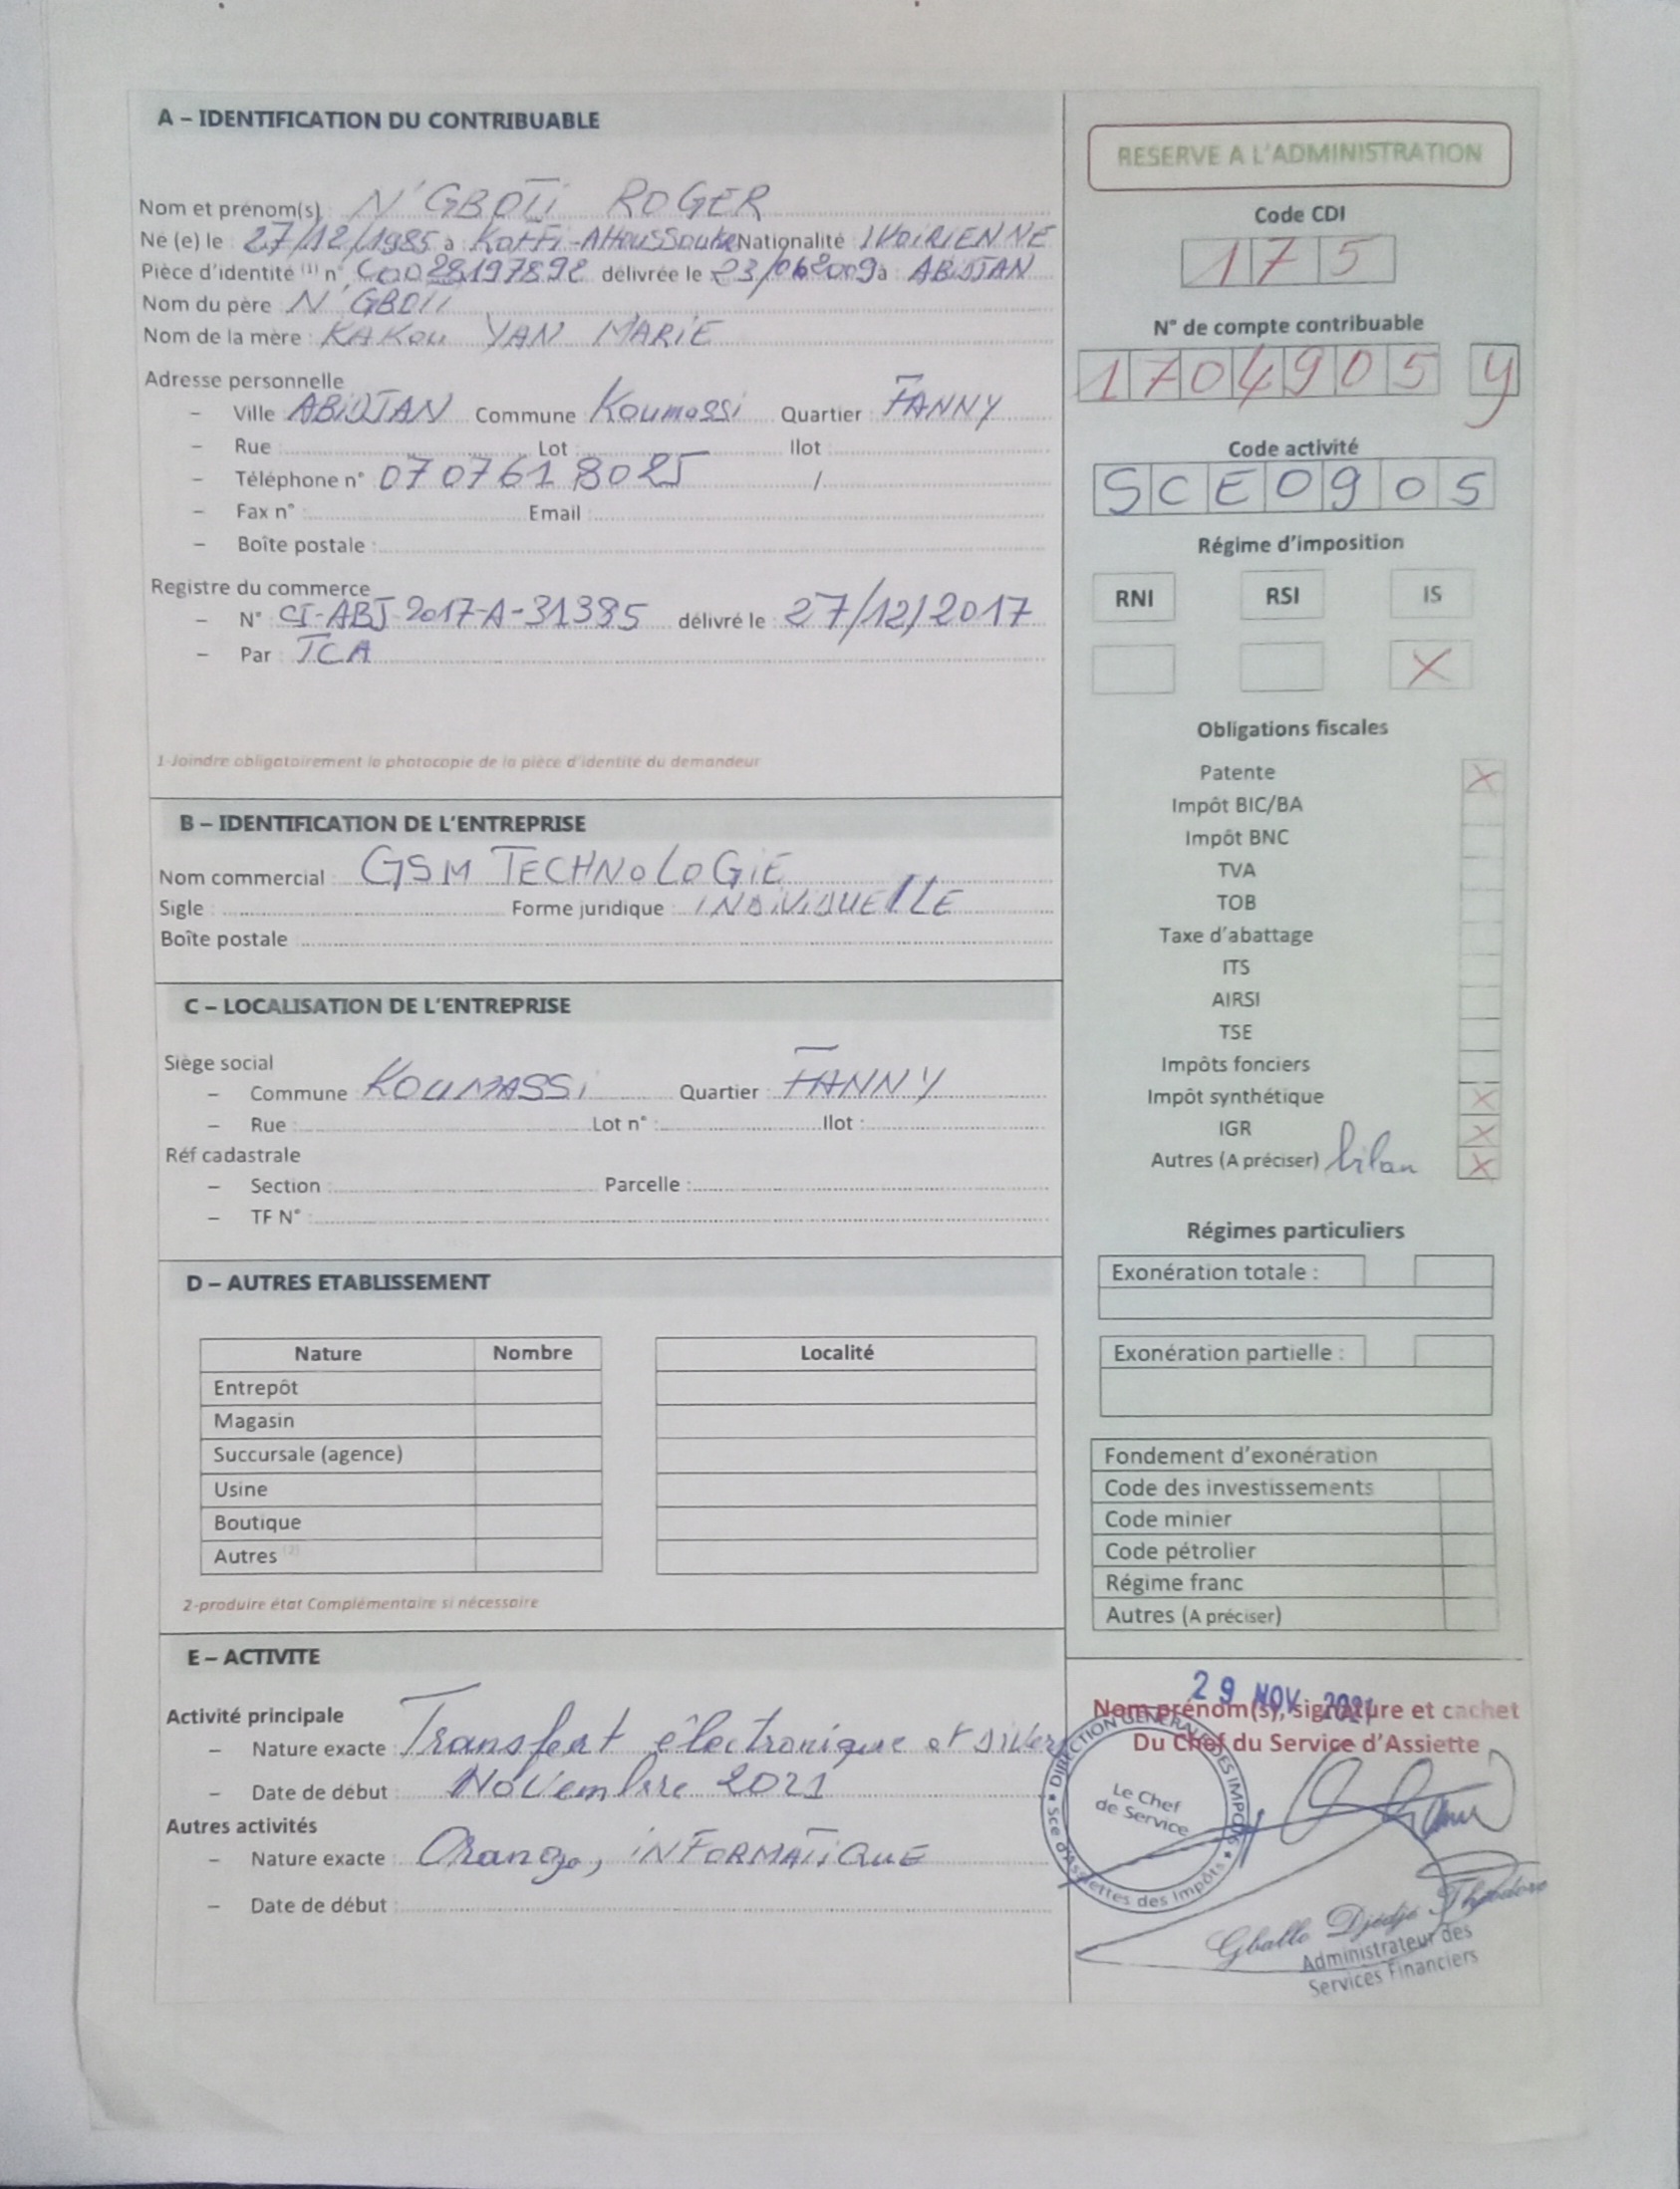 A – IDENTIFICATION DU CONTRIBUABLE
Nom et prénom(s) N'GBOTi ROGER
Né (e) le : 27/12/1985 à Koffi-AHoussouKro Nationalité : IVOIRIENNE
Pièce d'identité (1) n° C0028197892 délivrée le 23/06 2009 à : ABIDJAN
Nom du père N'GBOTi
Nom de la mère : KAKou YAN MARIE
Adresse personnelle
– Ville ABiDJAN Commune Koumassi Quartier : FANNY
– Rue : Lot : Ilot :
– Téléphone n° 07 07 61 80 25 /
– Fax n° : Email :
– Boîte postale :
Registre du commerce
– N° CI-ABJ-2017-A-31385 délivré le : 27/12/2017
– Par : TCA
1-Joindre obligatoirement la photocopie de la pièce d'identité du demandeur
B – IDENTIFICATION DE L'ENTREPRISE
Nom commercial : GSM TECHNoLoGiE
Sigle : Forme juridique : INDiViDUELLE
Boîte postale
C – LOCALISATION DE L'ENTREPRISE
Siège social
– Commune KOUMASSi Quartier : FANNY
– Rue : Lot n° : Ilot :
Réf cadastrale
– Section : Parcelle :
– TF N° :
D – AUTRES ETABLISSEMENT
Nature Nombre Localité
Entrepôt
Magasin
Succursale (agence)
Usine
Boutique
Autres (2)
2-produire état Complémentaire si nécessaire
E – ACTIVITE
Activité principale
– Nature exacte : Transfert électronique et Divers
– Date de début : Novembre 2021
Autres activités
– Nature exacte : Orange, iNFoRMATiQUE
– Date de début :
RESERVE A L'ADMINISTRATION
Code CDI
175
N° de compte contribuable
1704905 Y
Code activité
SCE0905
Régime d'imposition
RNI RSI IS
X
Obligations fiscales
Patente X
Impôt BIC/BA
Impôt BNC
TVA
TOB
Taxe d'abattage
ITS
AIRSI
TSE
Impôts fonciers
Impôt synthétique X
IGR X
Autres (A préciser) bilan X
Régimes particuliers
Exonération totale :
Exonération partielle :
Fondement d'exonération
Code des investissements
Code minier
Code pétrolier
Régime franc
Autres (A préciser)
29 NOV. 2021
Nom prénom(s), signature et cachet
Du Chef du Service d'Assiette
DIRECTION GENERALE DES IMPOTS
Le Chef
de Service
Sce d'Assiettes des Impôts
Gballo Djédjé Théodore
Administrateur des
Services Financiers